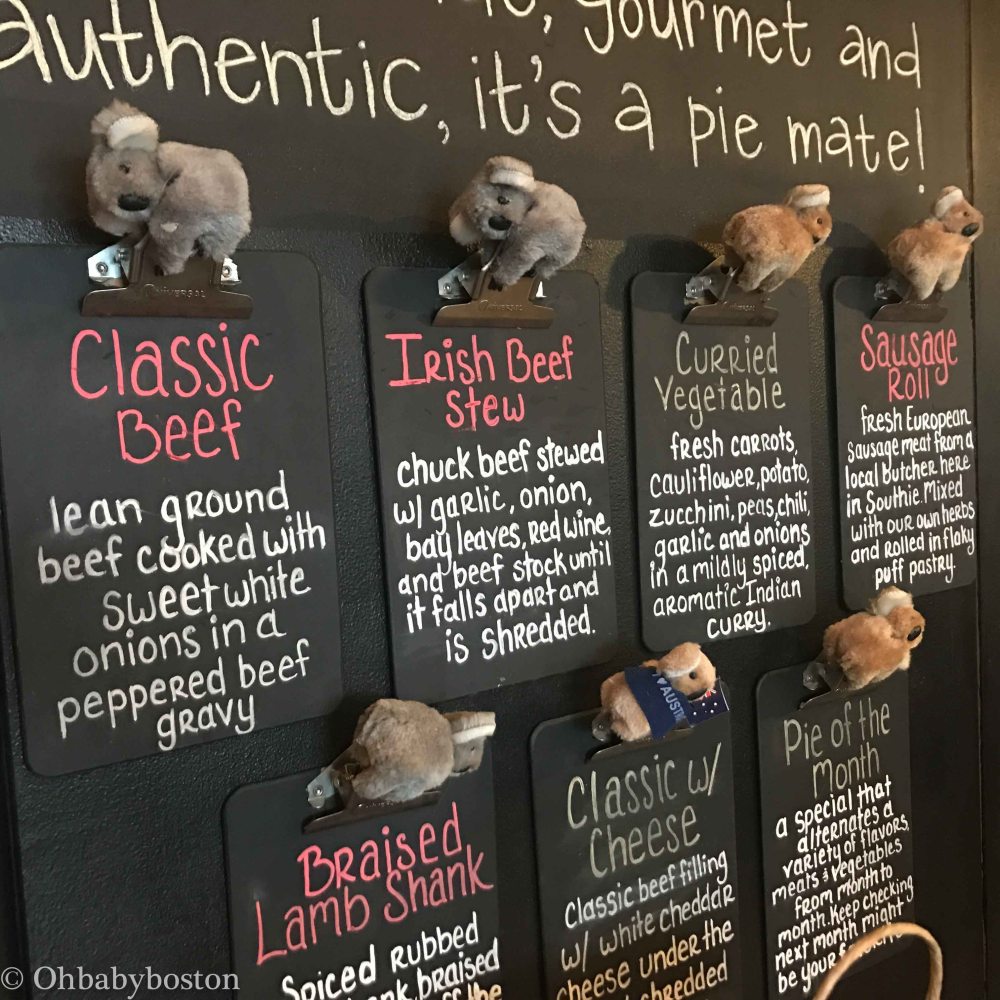 gourmet and
authentic, it's a pie mate!
UNIVERSAL
Classic
Beef
lean ground
beef cooked with
sweet white
onions in a
peppered beef
gravy
Irish Beef
Stew
chuck beef stewed
w/ garlic, onion,
bay leaves, red wine,
and beef stock until
it falls apart and
is shredded.
Curried
Vegetable
fresh carrots,
cauliflower, potato,
zucchini, peas, chili,
garlic and onions
in a mildly spiced,
aromatic Indian
curry.
Sausage
Roll
fresh European
sausage meat from a
local butcher here
in Southie. Mixed
with our own herbs
and rolled in flaky
puff pastry.
Braised
Lamb Shank
Spiced rubbed
braised
the
Classic w/
Cheese
Classic beef filling
w/ white cheddar
cheese under the
shredded
AUST
Pie of the
Month
a special that
alternates a
variety of flavors,
meats & vegetables
from month to
month. Keep checking
next month might
be your
© Ohbabyboston